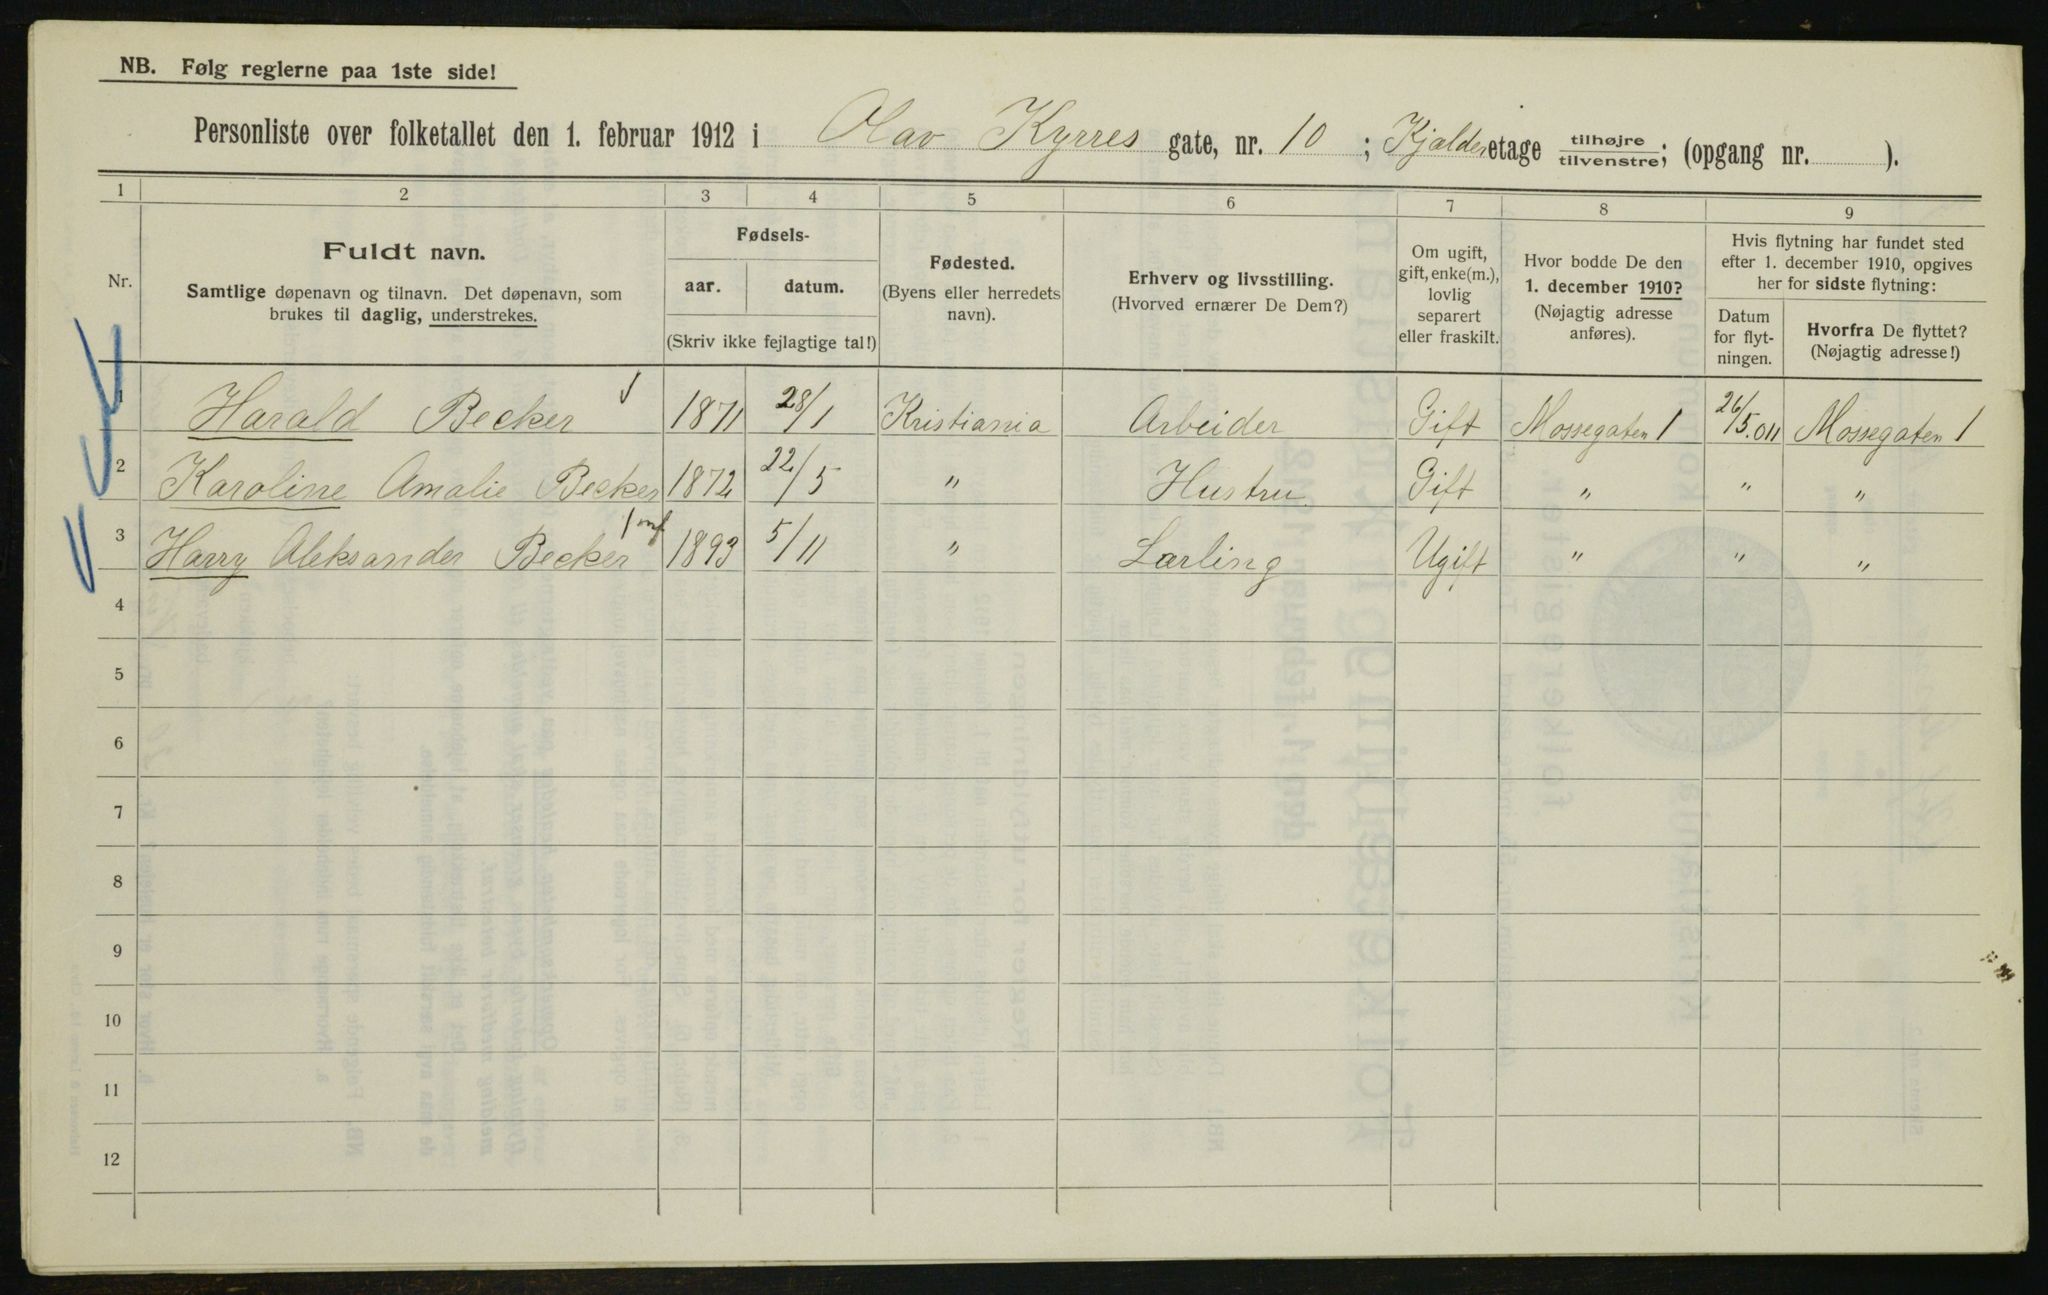 NB. Følg reglerne paa 1ste side!
Personliste over folketallet den 1. februar 1912 i Olav Kyrres gate, nr. 10 ; Kjælder etage tilhøjre/tilvenstre; (opgang nr. ).
1 2 3 4 5 6 7 8 9
Nr.
Fuldt navn.
Samtlige døpenavn og tilnavn. Det døpenavn, som
brukes til daglig, understrekes.
Fødsels-
aar. datum.
(Skriv ikke fejlagtige tal!)
Fødested.
(Byens eller herredets
navn).
Erhverv og livsstilling.
(Hvorved ernærer De Dem?)
Om ugift,
gift, enke(m.),
lovlig
separert
eller fraskilt.
Hvor bodde De den
1. december 1910?
(Nøjagtig adresse
anføres).
Hvis flytning har fundet sted
efter 1. december 1910, opgives
her for sidste flytning:
Datum
for flyt-
ningen.
Hvorfra De flyttet?
(Nøjagtig adresse!)
1 Harald Becker 1871 28/1 Kristiania Arbeider Gift Mossegaten 1 26/5.011 Mossegaten 1
2 Karoline Amalie Becker 1872 22/5 " Hustru Gift " " "
3 Harry Aleksander Becker 1 mf 1893 5/11 " Lærling Ugift " " "
4
5
6
7
8
9
10
11
12